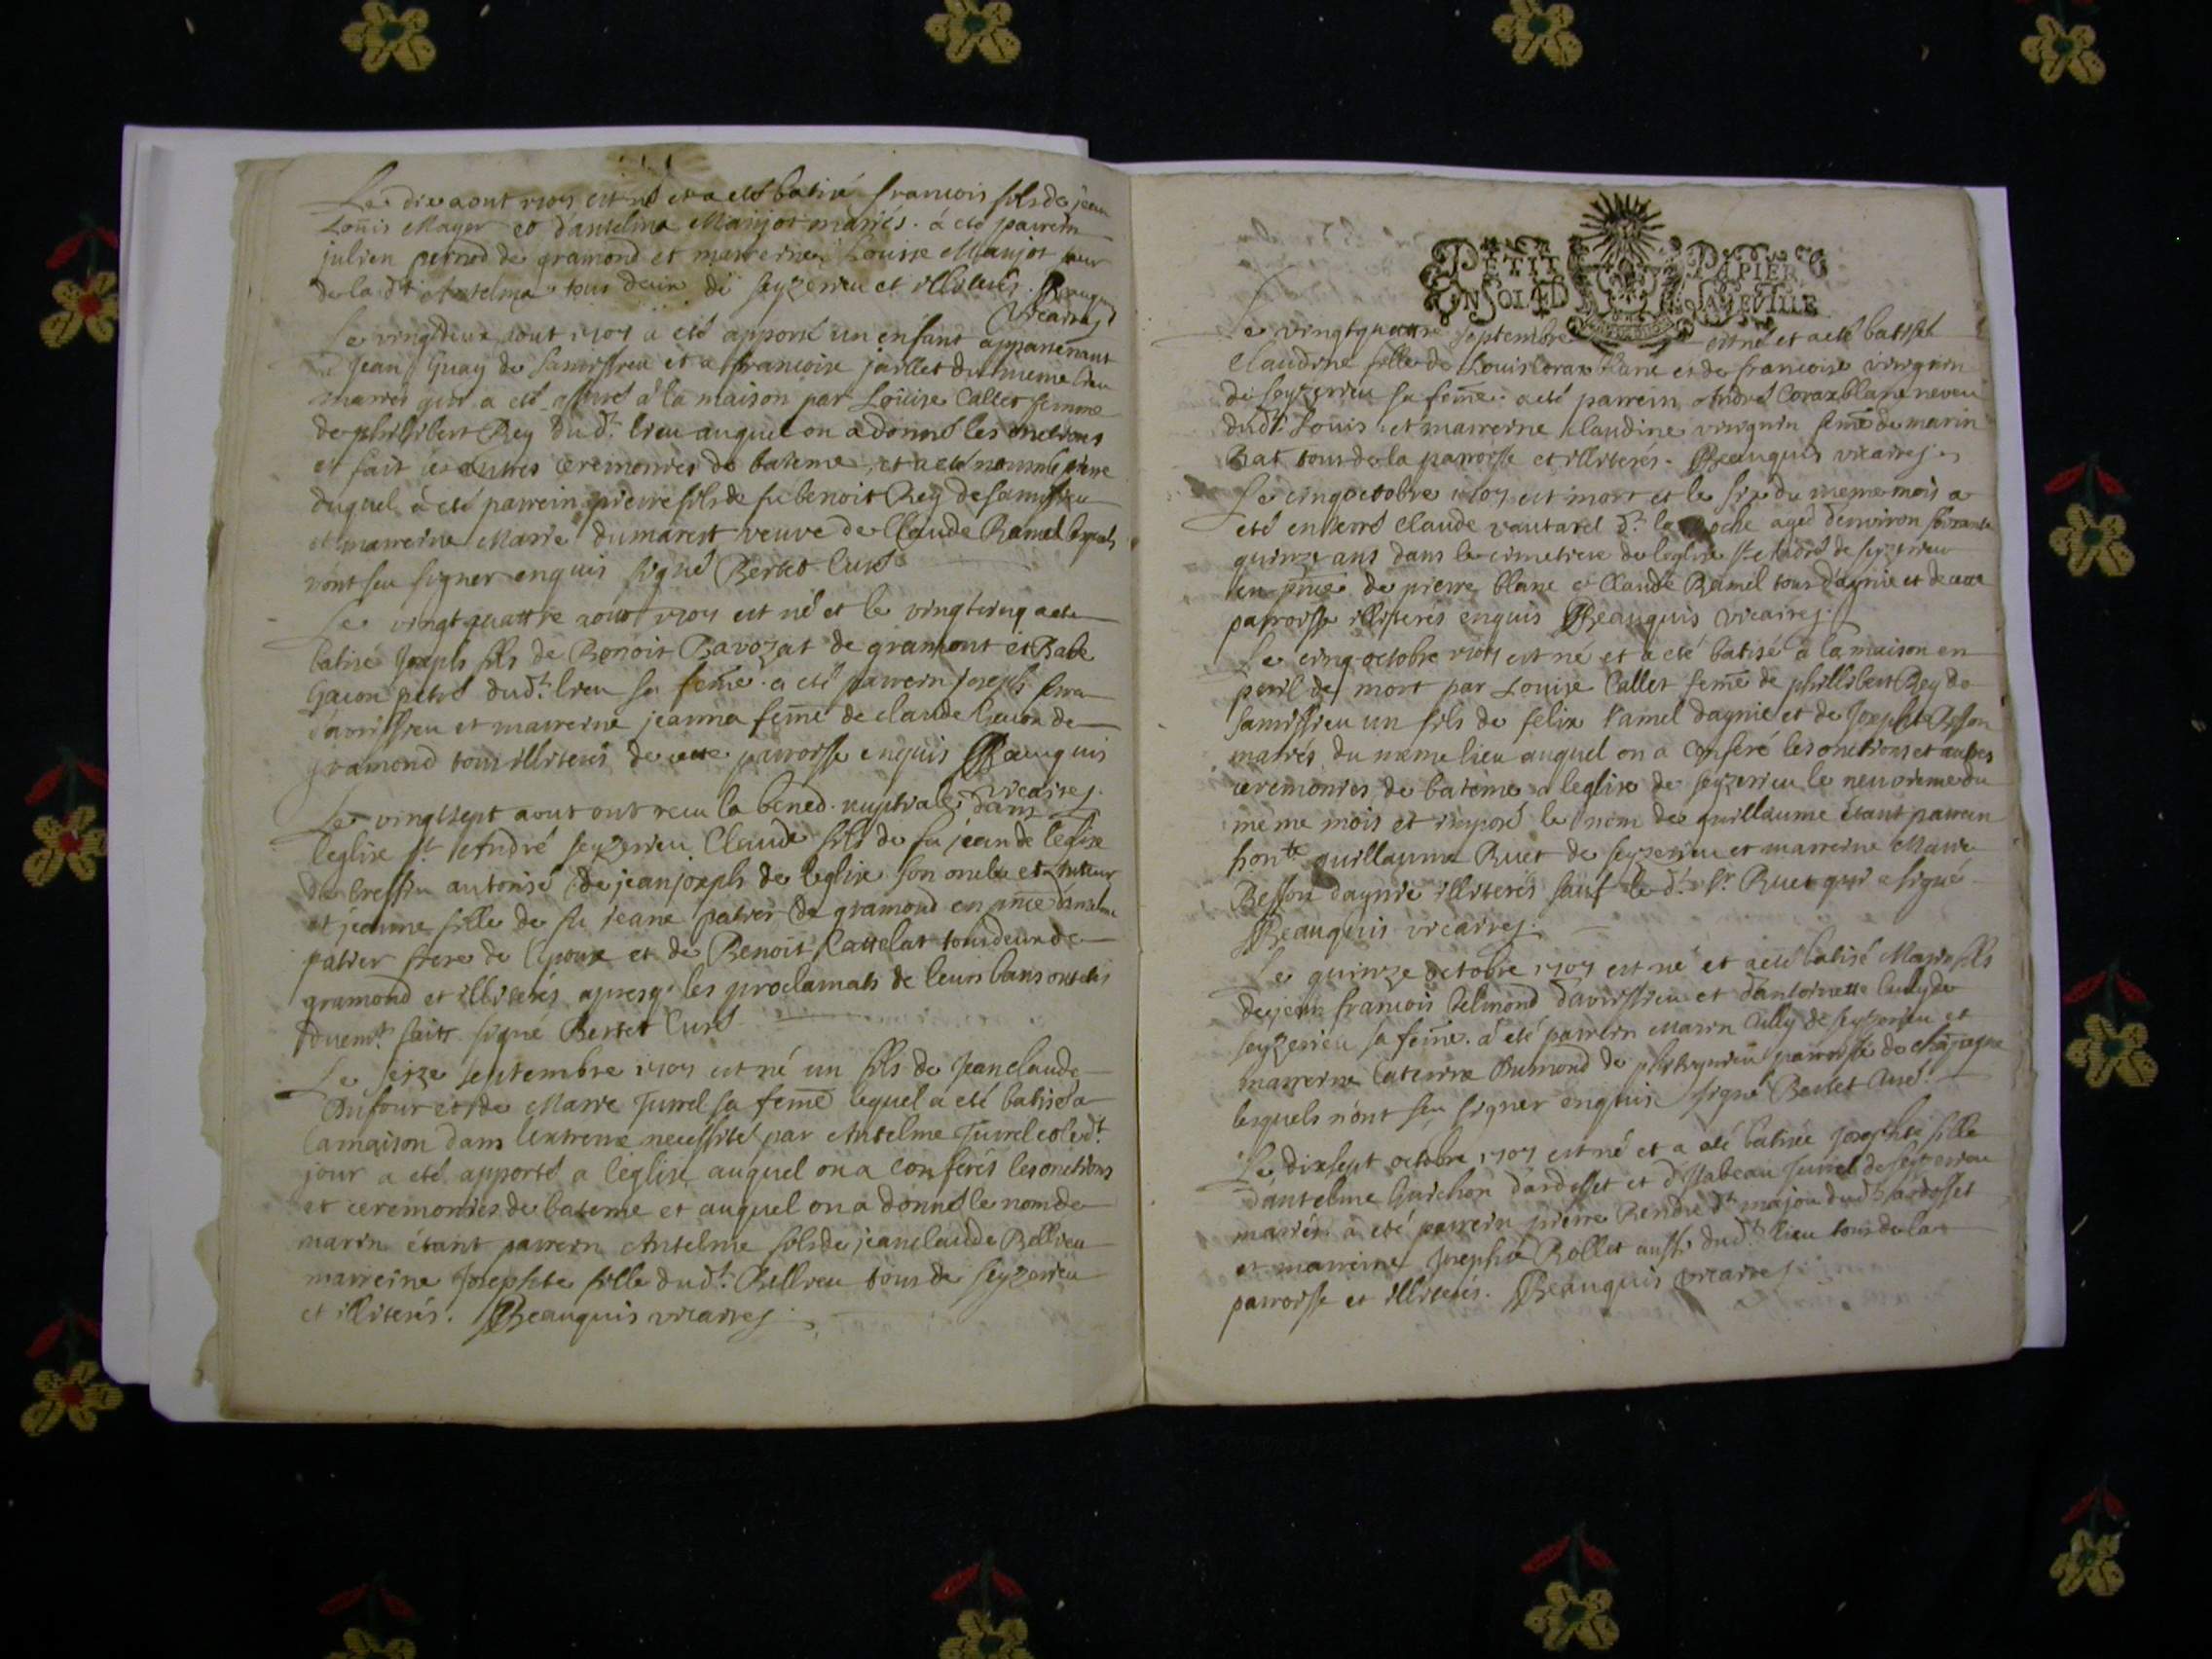 Le dix aout 1707 est né et a eté batisé francois fils de jean
Loüis Mayer et d'antelma Maujot mariés. a eté parrein
julien pernod de gramond et marreine Louise Maujot sœur
de la dt Antelma tous deux de seyzerieu et illiterés. Beauquis
vicaires
Le vingtdeux aout 1707 a eté apporté un enfant appartenant
a Jean Guay de Samissieu et a francoise jaillet du meme lieu
mariés qui a eté à la maison par Loüise Callet femme
de philibert Rey dudt. lieu auquel on a donné les onctions
et fait les autres ceremonies de bateme, et a eté nommé pierre
duquel à eté parrein pierre fils de fu benoit Rey de samissieu
et marreine Marie dumarest veuve de Claude Ramel lequels
n'ont seu signer enquis signé Berket Curé
Le vingtquattre aout 1707 est né et le vingtcinq a eté
batisé Joseph fils de Benoit Bavozat de gramont et Babe
Gacon petró dudt. lieu sa feme. a eté parrein joseph
d'avrissieu et marreine jeanna feme de claude Gacon de
gramond tous illiterés de cette parroisse enquis Beauquis
vicaires.
Le vingtsept aout ont receu la bened. nuptiale dans
leglise st André seyzerieu Claude fils de fu jean de leglise
de Cressin autorisé de jean joseph de leglise son oncle et tuteur
et jeanne fille de fu jeane patier de gramond en pnce d'anthelme
patier frere de l'epouse et de Benoit Cattelat tous deux de
gramond et illiterés apresq. les proclamats de leurs bans ont étés
duemt. faits signé Berket Curé
Le seize septembre 1707 est né un fils de Jeanclaude
Dufour et de Marie Juvrel sa feme lequel a eté batisé a
la maison dans lextreme necessité par Antelme Juvrel et ledt.
jour a eté apporté a l'eglise auquel on a conferés les onctions
et ceremonies de bateme et auquel on a donné le nom de
marin étant parrein Antelme fils de jeanclaude Bellieu
marreine Josephte fille dudt. Bellieu tous de seyzerieu
et illiterés. Beauquis vicaires
PETIT PAPIER
UN SOL 4 D LA FEVILLE
Le vingtquattre septembre est né et a eté batisé
Claudine fille de Louis Corax blanc et de francoise vinguin
de seyzerieu sa feme. a eté parrein André Corax blanc neveu
dudt Louis et marreine claudine vinguin feme de marin
Bat tous de la parroisse et illiterés. Beauquis vicaires
Le cinq octobre 1707 est mort et le six du meme mois a
eté enterré Claude vautaret dt. la Roche agé denviron soixante
quinze ans dans le cimetiere de leglise st André de seyzerieu
en pnce de pierre blanc et Claude Ramel tous d'agnie et de cette
parroisse illiterés enquis Beauquis vicaires
Le cinq octobre 1707 est né et a eté batisé à la maison en
peril de mort par Louise Callet feme de phillibert Rey de
samissieu un fils de felix Ramel dagnie et de Josephte Besson
mariés du meme lieu auquel on a conferé les onctions et autres
ceremonies de bateme a leglise de seyzerieu le neuvieme du
meme mois et imposé le nom de guillaume étant parrein
honte guillaume Ruet de seyzerieu et marreine Marie
Besson dagnie illiterés sauf le dt. sr. Ruet qui a signé
Beauquis vicaires.
Le quinze octobre 1707 est né et a eté batisé Marin fils
de jean francois Belmond d'avrissieu et d'antoinette Cully de
seyzerieu sa feme. a eté parrein Marin Cully de seyzerieu et
marreine Caterine Dumond de parroisse de chāpagne
lesquels n'ont seu signer enquis signé Berket Curé.
Le dixsept octobre 1707 est né et a eté batisée Josephte fille
d'antelme Guichon d'ardosset et d'Isabeau Juvrel de seyzerieu
mariés. a eté parrein pierre Rendu dt. majou dudt. ardosset
et marreine Josephte Rollet aussi dudt. lieu tous de la
parroisse et illiterés. Beauquis vicaires